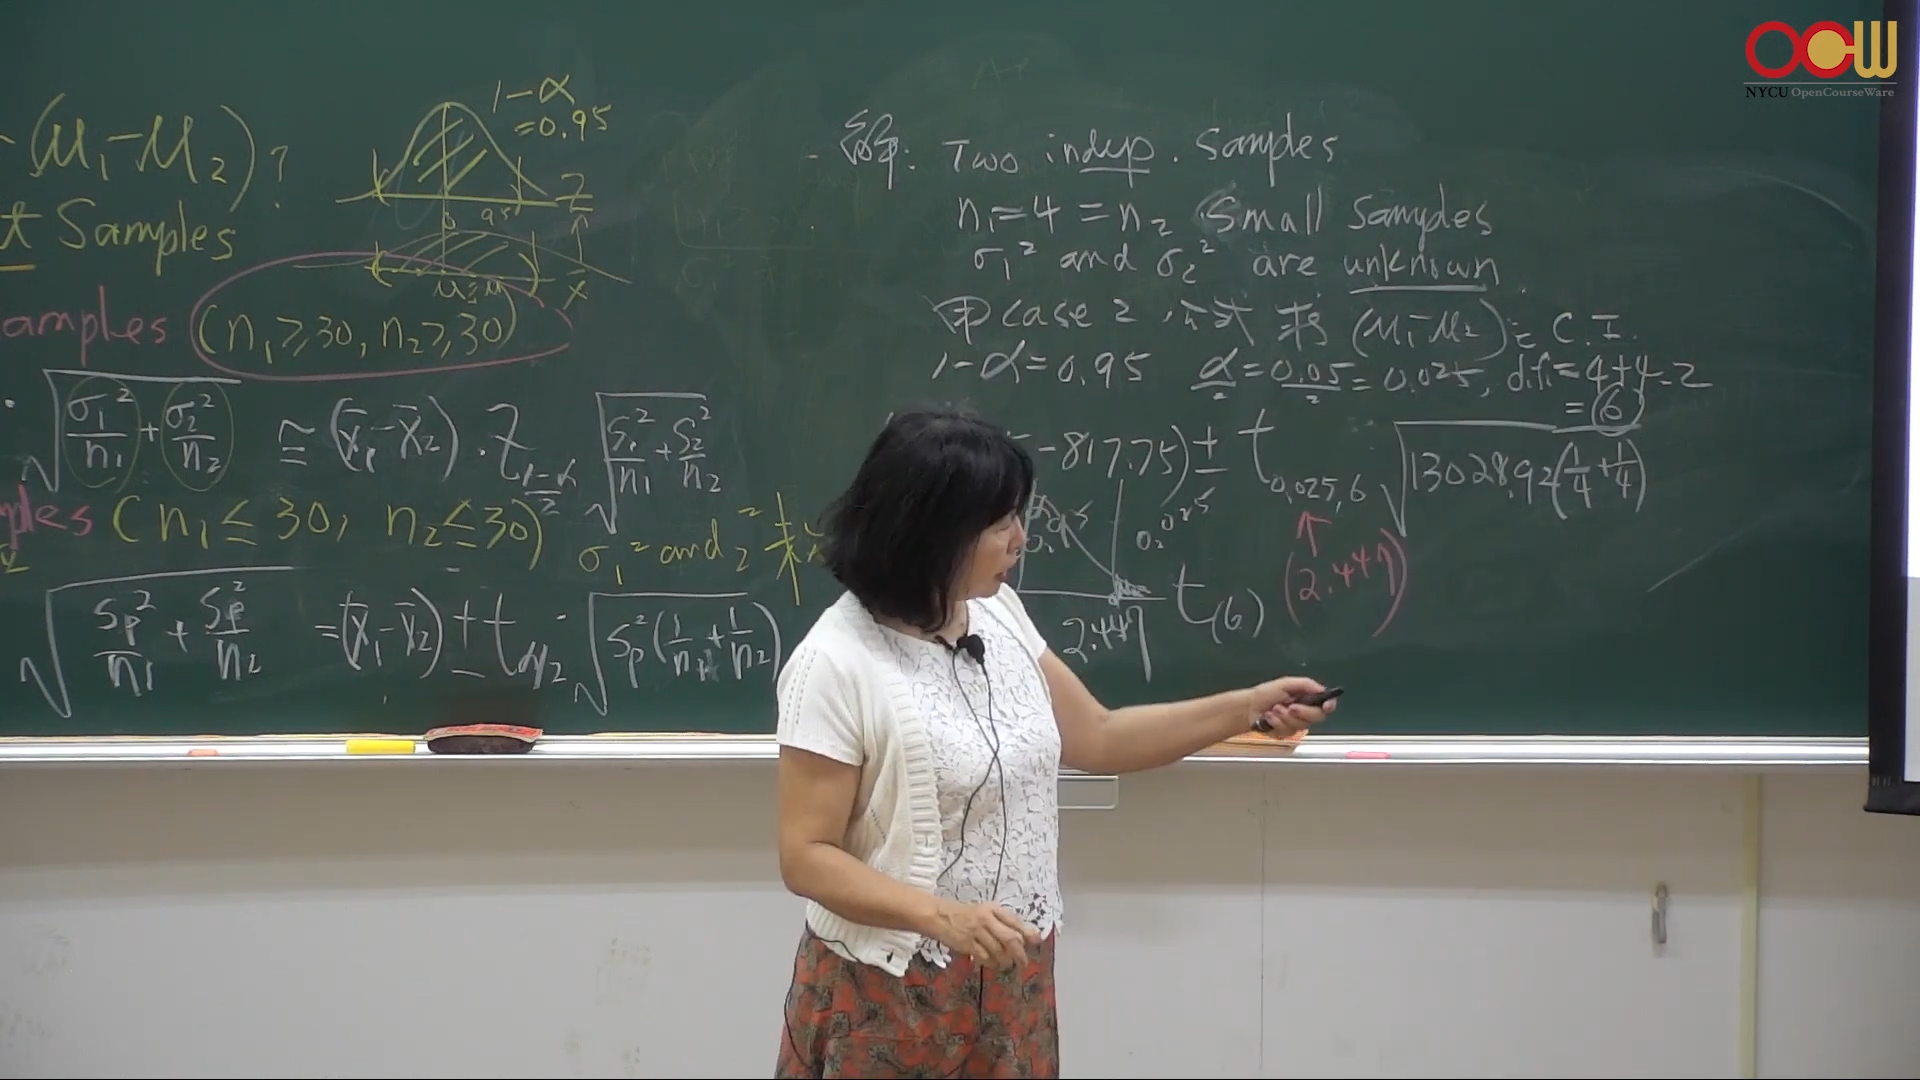 OCW
NYCU OpenCourseWare
(μ₁-μ₂)?
t Samples
amples (n₁≥30, n₂≥30)
√(σ₁²/n₁ + σ₂²/n₂) ≅ (x̄₁-x̄₂) · Z √(S₁²/n₁ + S₂²/n₂)
ples (n₁≤30, n₂≤30) σ₁² and ₂² 未
√(Sp²/n₁ + Sp²/n₂) = (x̄₁-x̄₂) ± t α/2 · √(Sp²(1/n₁ + 1/n₂))
1-α
=0.95
Z
解: Two indep. Samples
n₁=4=n₂ Small Samples
σ₁² and σ₂² are unknown
用 case 2 公式 求 (μ₁-μ₂) 之 C.I.
1-α=0.95 α/2=0.05/2=0.025, d.f.=4+4-2
=(6)
-817.75) ± t 0.025,6 √(13028.92(1/4+1/4))
0.025
(2.447)
2.447 t(6)